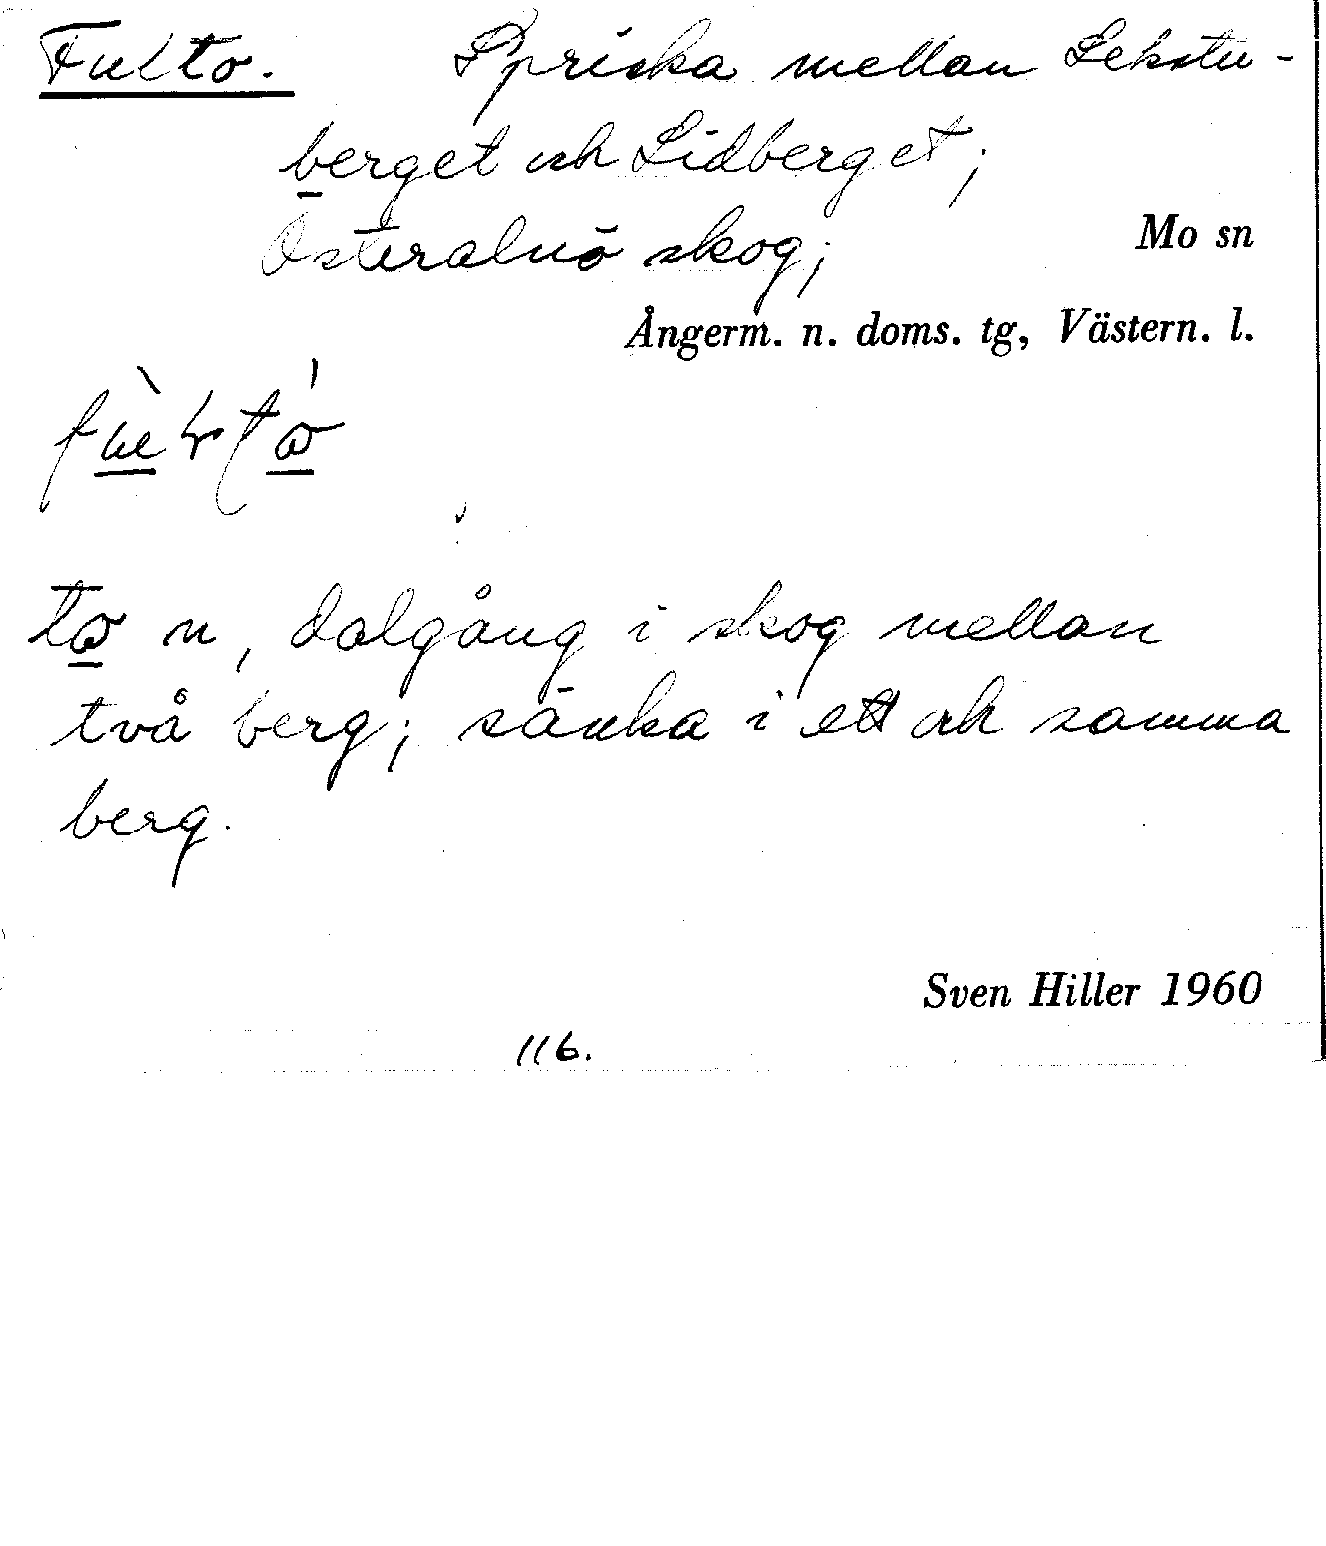 Fulto. Spriska mellan Lekstu-
berget och Lidberget;
Österalnö skog;
Mo sn
Ångerm. n. doms. tg, Västern. l.
to n, dalgång i skog mellan
två berg; sänka i ett och samma
berg.
Sven Hiller 1960
116.